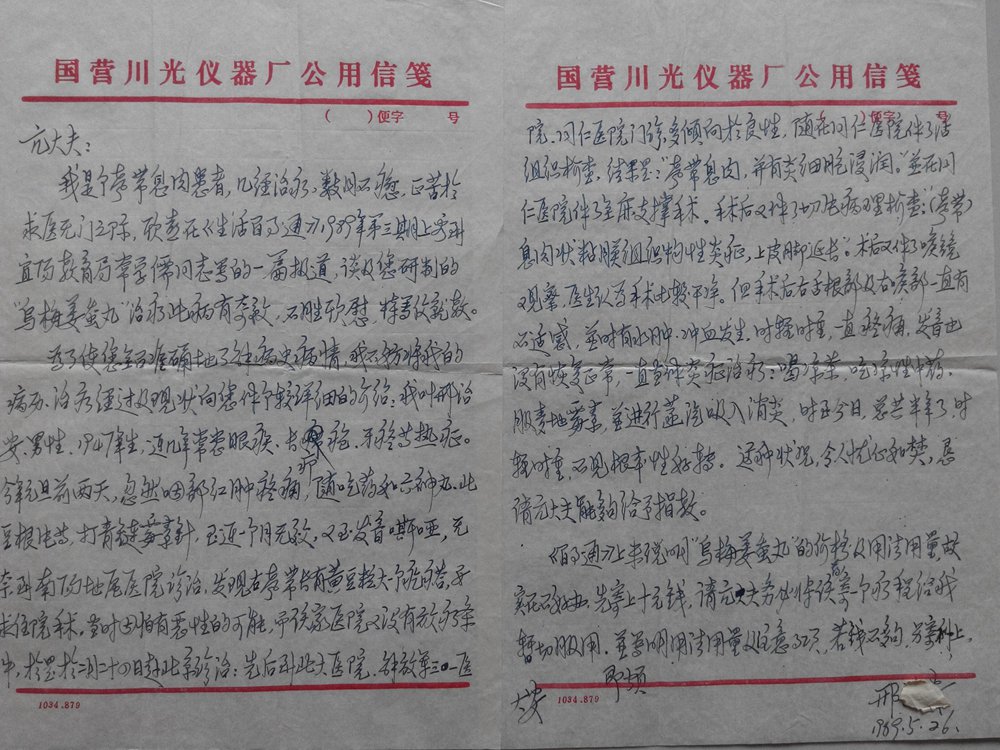 国营川光仪器厂公用信笺
（　）便字　号
亢大夫：
我是个声带息肉患者，几经治疗，数月不愈，正苦于
求医无门之际，欣查在《生活百事通》1989年第三期上寄刊
宜阳教育局 学儒同志写的一篇报道，谈及您研制的
“乌梅姜蚕丸”治疗此病有奇效，不胜欣慰，特写信就教。
为了使您全面准确地了解病史病情，我不妨将我的
病历、治疗经过及现状向您作个较详细的介绍：我叫邢治
安，男性，1947年生，近几年常患眼疾、长 疮、牙疼等热症。
今年元旦前两天，忽然咽部红肿疼痛，即随吃药如六神丸、山
豆根片等，打青链霉素针，至近一个月无效，又至发音嘶哑，无
奈到南阳地区医院诊治，发现右声带长有黄豆粒大一个疙瘩，要
求住院手术。当时因怕有恶性的可能，而该家医院又没有放疗条
件，于是于二月二十四日赴北京诊治：先后到北大医院、解放军三〇一医
1034.879
国营川光仪器厂公用信笺
（　）便字　号
院、同仁医院门诊，多倾向于良性，随在同仁医院作了活
组织检查，结果是：“声带息肉，并有炎细胞浸润。”并在同
仁医院作了全麻支撑手术。手术后又作了切片病理检查：“（声带）
息肉状粘膜组织慢性炎症，上皮脚延长”。术后又作了喉镜
观察，医生认为手术比较干净。但手术后右舌根部及右喉部一直有
不适感，并时有水肿、冲血发生，时轻时重，一直疼痛，发音也
没有恢复正常，一直当作炎症治疗：喝凉茶、吃凉性中药、
服麦地霉素，并进行蒸汽吸入消炎，时至今日，甚苦半年了，时
轻时重，不见根本性好转。这种状况，令人忧心如焚，恳
请亢大夫能够给予指教。
《百事通》上未说明“乌梅姜蚕丸”的价格及用法用量，故
实在不好办，先寄上十元钱，请亢大夫务必将该药寄一个疗程给我
暂切服用，并写明用法用量及注意事项，若钱不够，另寄补上。
即颂
大安
邢 安
1989.5.26.
1034.879